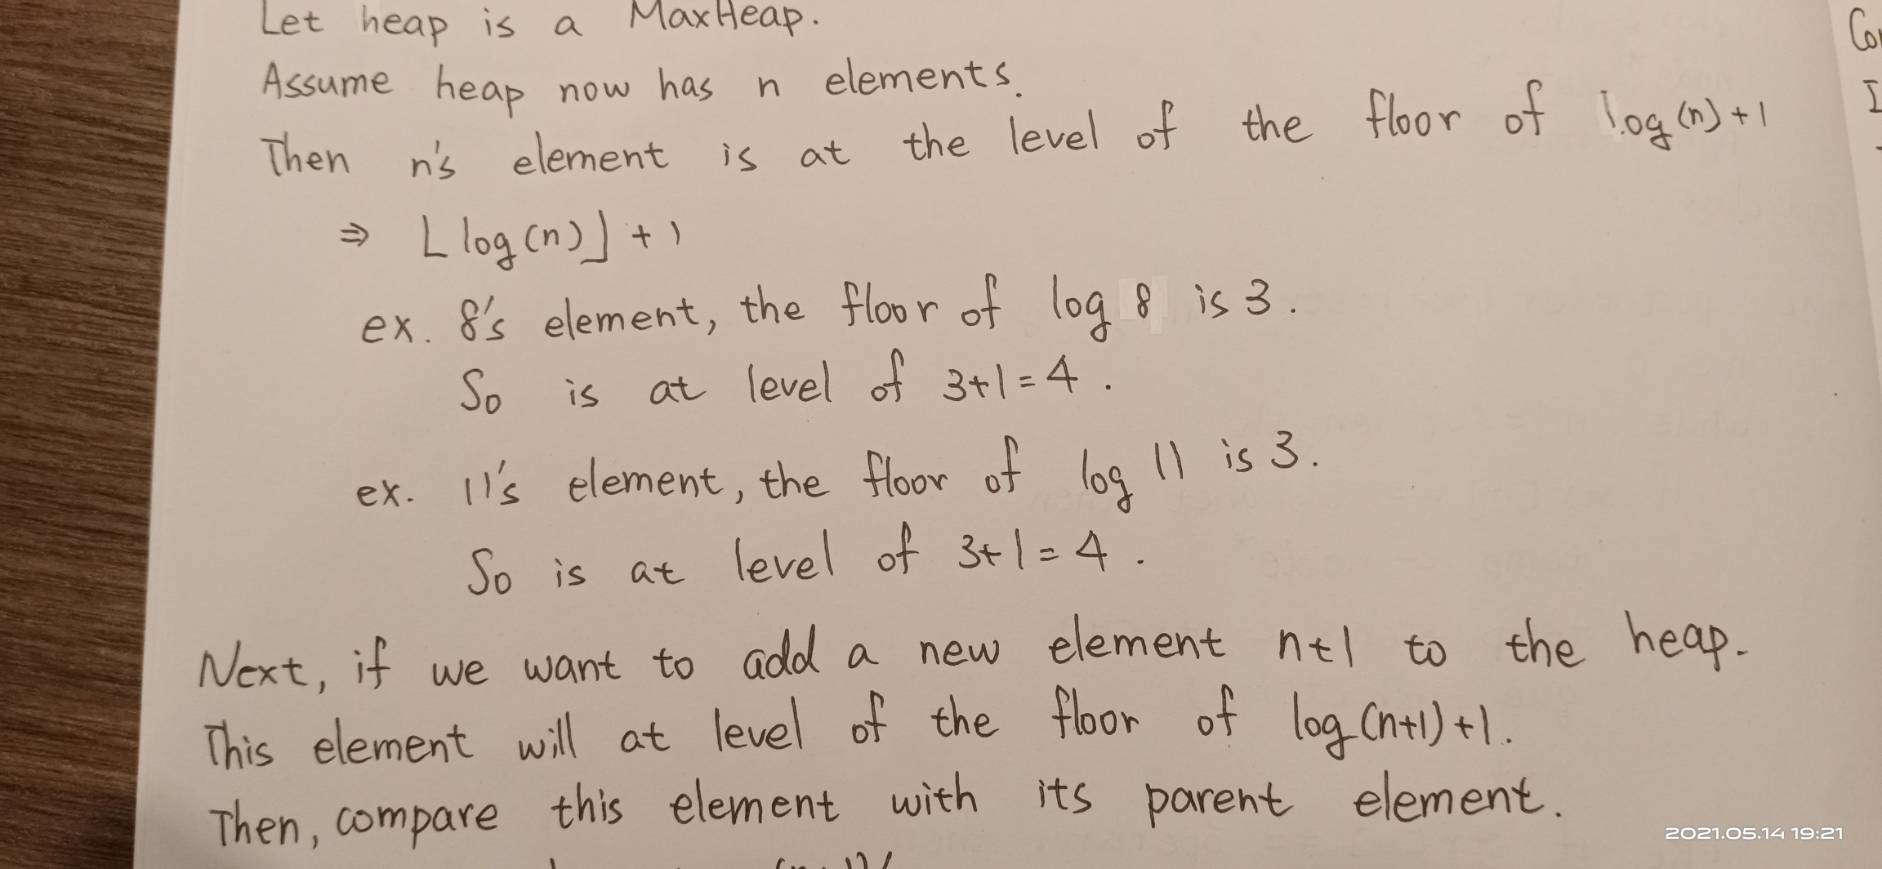 Let heap is a MaxHeap.
Assume heap now has n elements.
Then n's element is at the level of the floor of log(n)+1
⇒ ⌊log(n)⌋+1
ex. 8's element, the floor of log 8 is 3.
So is at level of 3+1=4.
ex. 11's element, the floor of log 11 is 3.
So is at level of 3+1=4.
Next, if we want to add a new element n+1 to the heap.
This element will at level of the floor of log(n+1)+1.
Then, compare this element with its parent element.
2021.05.14 19:21